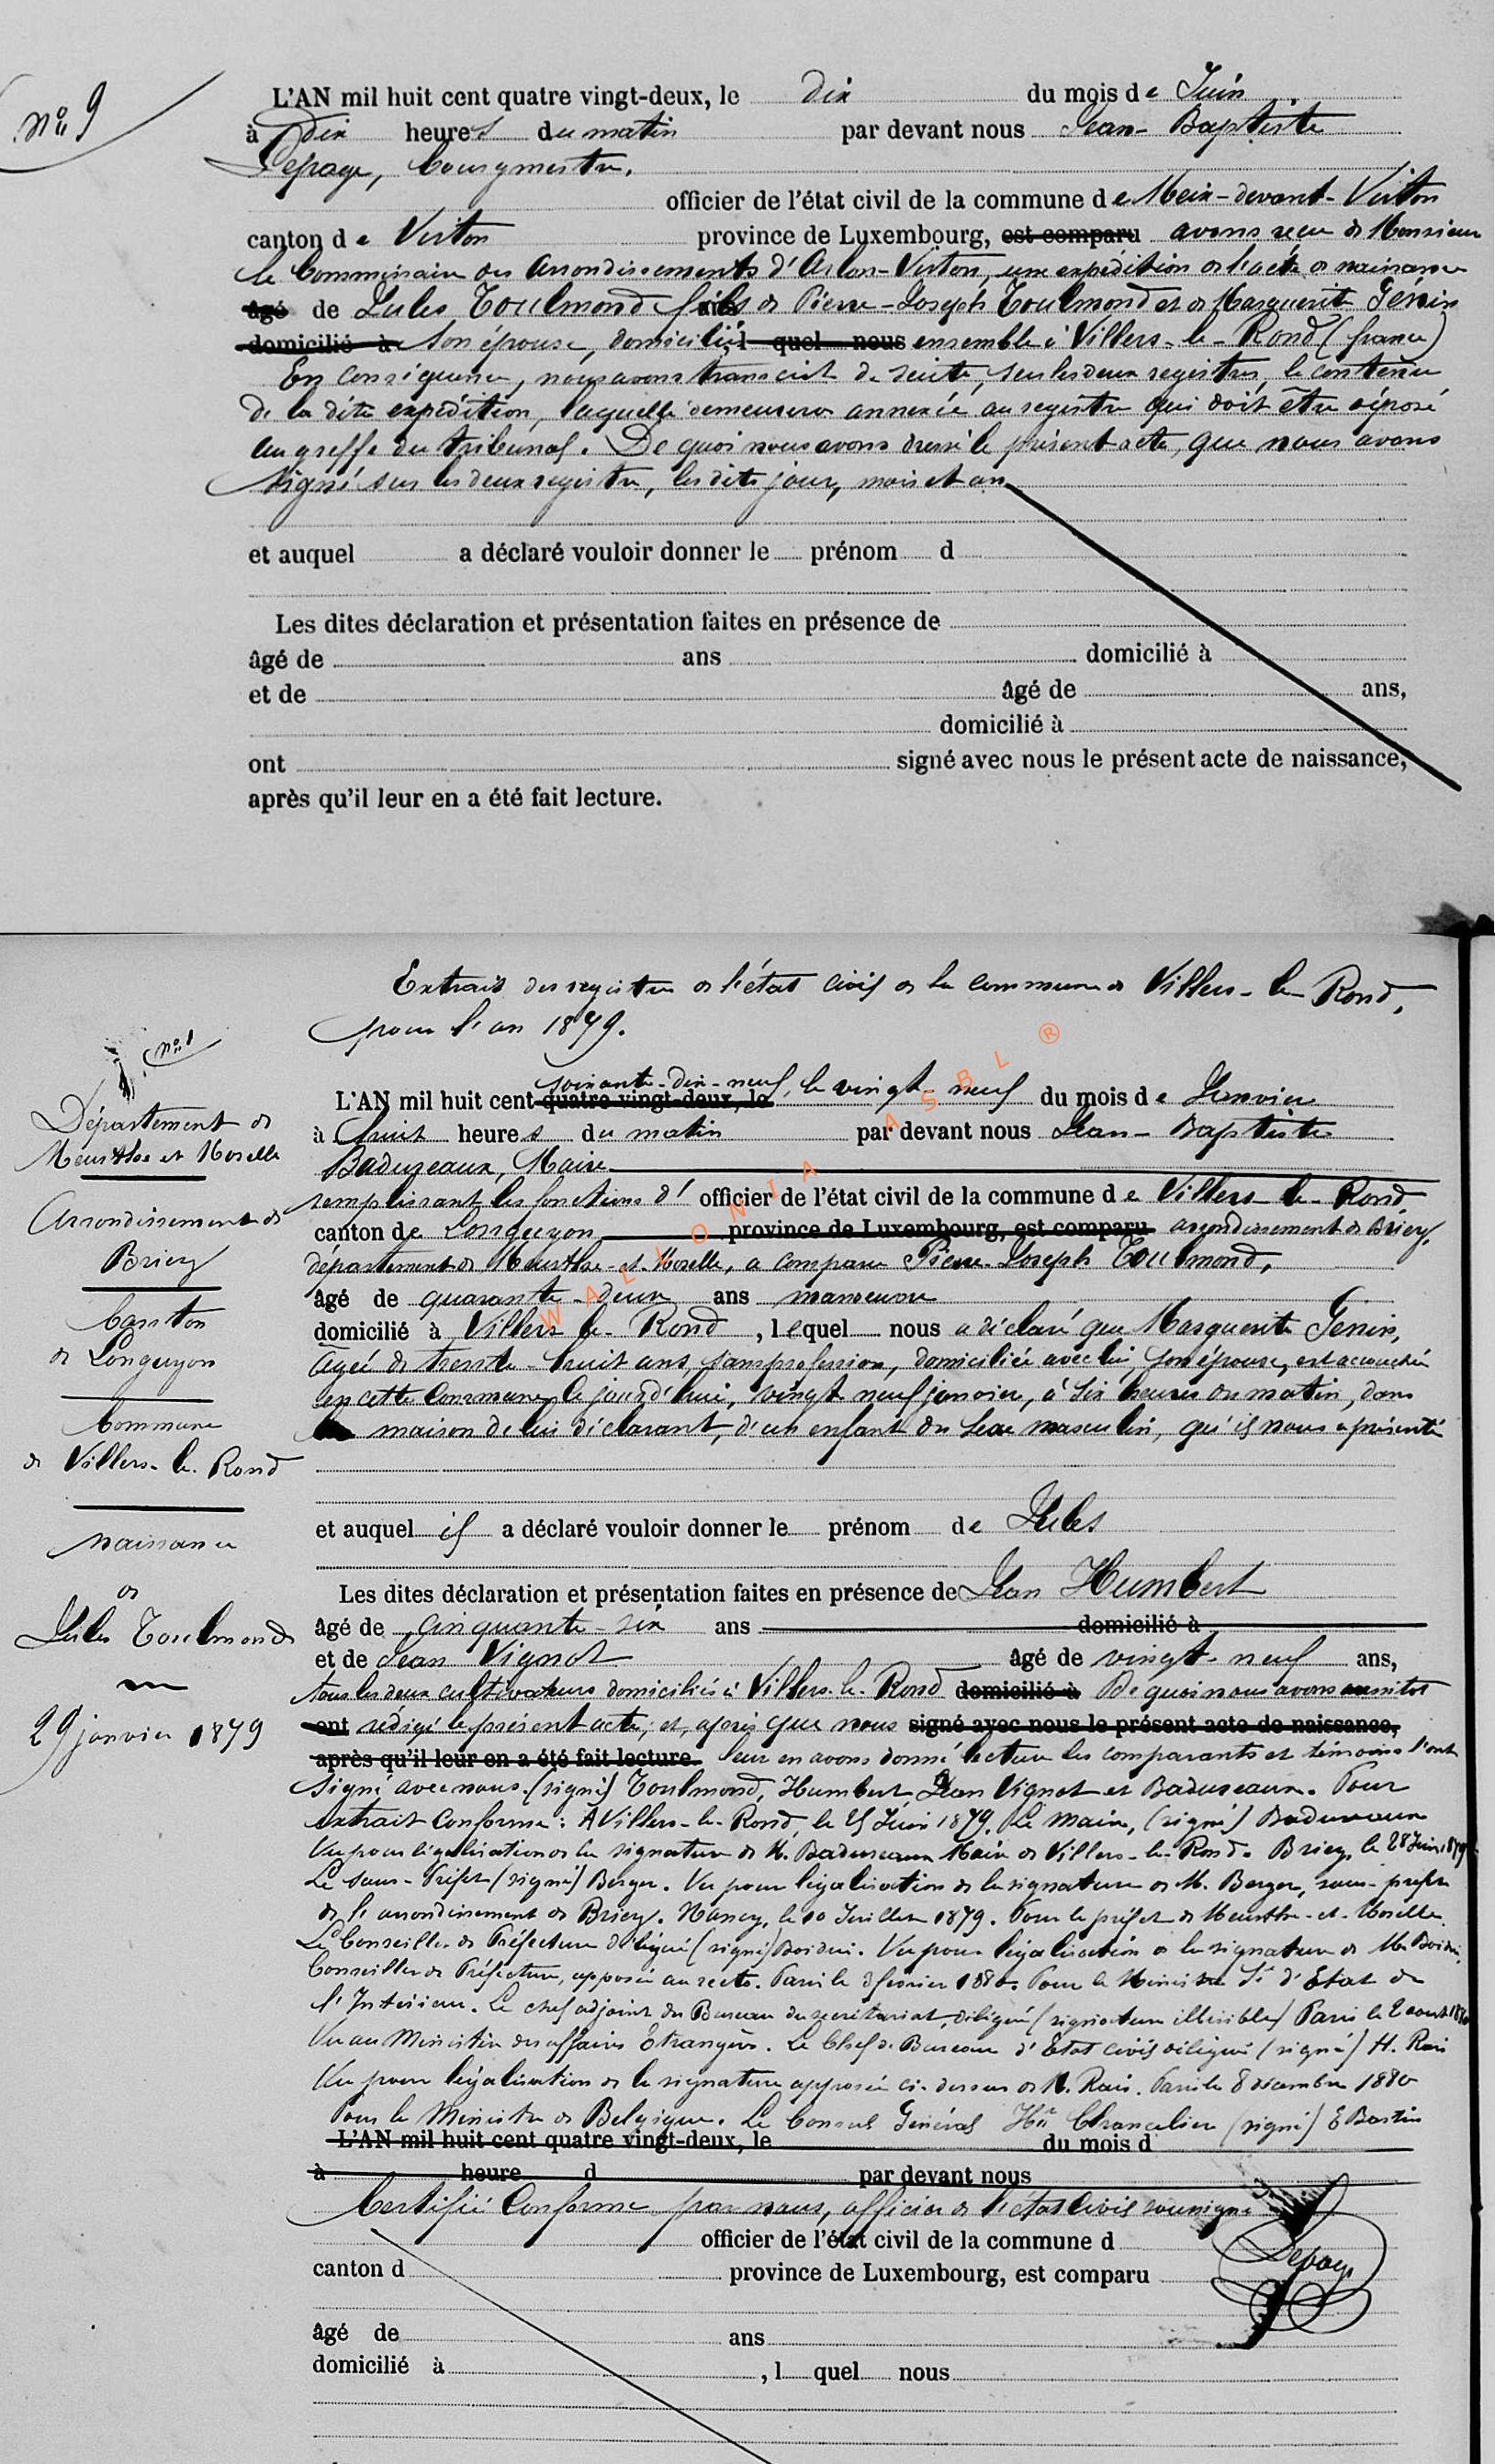 nº 9
L'AN mil huit cent quatre vingt-deux, le dix du mois de Juin
à dix heures du matin par devant nous Jean-Baptiste
Lepage, bourgmestre,
officier de l'état civil de la commune de Meix-devant-Virton
canton de Virton province de Luxembourg, est comparu avons reçu de Monsieur
le Commissaire des Arrondissements d'Arlon-Virton, une expédition de l'acte de naissance
âgé de Jules Toulmond fils de Pierre-Joseph Toulmond et de Marguerite Génin
domicilié à son épouse, domiciliés l quel nous ensemble à Villers-le-Rond (france)
En conséquence, nous avons transcrit de suite, sur les deux registres, le contenu
de la dite expédition, laquelle demeurera annexée au registre qui doit être déposé
au greffe du tribunal. De quoi nous avons dressé le présent acte, que nous avons
signé sur les deux registre, les dits jour, mois et an
et auquel a déclaré vouloir donner le prénom d
Les dites déclaration et présentation faites en présence de
âgé de ans domicilié à
et de âgé de ans,
domicilié à
ont signé avec nous le présent acte de naissance,
après qu'il leur en a été fait lecture.
Extrait des registres de l'état civil de la commune de Villers-le-Rond,
pour l'an 1879.
nº 1
Département de
Meurthe et Moselle
Arrondissement de
Briey
Canton
de Longuyon
Commune
de Villers-le-Rond
naissance
de
Jules Toulmond
29 janvier 1879
soixante-dix-neuf, le vingt neuf
L'AN mil huit cent quatre vingt-deux, le du mois de Janvier
à huit heures du matin par devant nous Jean-Baptiste
Baduzeaux, Maire
remplissant les fonctions d' officier de l'état civil de la commune de Villers-le-Rond
canton de Longuyon province de Luxembourg, est comparu arrondissement de Briey,
département de Meurthe-et-Moselle, a comparu Pierre-Joseph Toulmond,
âgé de quarante-deux ans manoeuvre
domicilié à Villers-le-Rond, lequel nous a déclaré que Marguerite Génin,
âgée de trente-huit ans, sans profession, domiciliée avec lui, son épouse, est accouchée
en cette commune, le jourd'hui, vingt neuf janvier, à six heures du matin, dans
maison de lui déclarant, d'un enfant du sexe masculin, qu'il nous a présenté
et auquel il a déclaré vouloir donner le prénom de Jules
Les dites déclaration et présentation faites en présence de Jean Humbert
âgé de cinquante-six ans domicilié à
et de Jean Vignot âgé de vingt-neuf ans,
tous les deux cultivateurs domiciliés à Villers-le-Rond domicilié à De quoi nous avons aussitôt
ont rédigé le présent acte, et, après que nous signé avec nous le présent acte de naissance,
après qu'il leur en a été fait lecture leur en avons donné lecture les comparants et témoins l'ont
signé avec nous. (signé) Toulmond, Humbert, Jean Vignot et Baduzeaux. Pour
extrait conforme: A Villers-le-Rond, le 25 Juin 1879. Le Maire, (signé) Baduzeaux
Vu pour légalisation de la signature de M. Baduzeaux Maire de Villers-le-Rond. Briey, le 28 Juin 1879
Le Sous-Préfet (signé) Berger. Vu pour légalisation de la signature de M. Berger, sous-préfet
de l'arrondissement de Briey. Nancy, le 10 Juillet 1879. Pour le préfet de Meurthe-et-Moselle
Le Conseiller de Préfecture délégué (signé) Boidin. Vu pour légalisation de la signature de M. Boidin,
Conseiller de Préfecture, apposée au recto. Paris le février 1880. Pour le Ministre d'Etat de
l'Intérieur. Le chef adjoint du Bureau du secrétariat, délégué (signature illisible) Paris le 2 aout 1880
Vu au Ministère des affaires Etrangères. Le Chef de Bureau d'Etat civil délégué (signé) H.
Vu pour légalisation de la signature apposée ci-dessus de M. Paris le 8 décembre 1880
Pour le Ministre de Belgique. Le Consul Général Chancelier (signé) E Bastin
L'AN mil huit cent quatre vingt-deux, le du mois d
à heure d par devant nous
Certifié conforme par nous, officier de l'état civil soussigné
officier de l'état civil de la commune d
Lepage
canton d province de Luxembourg, est comparu
âgé de ans
domicilié à , l quel nous
WALLONIA ASBL ®